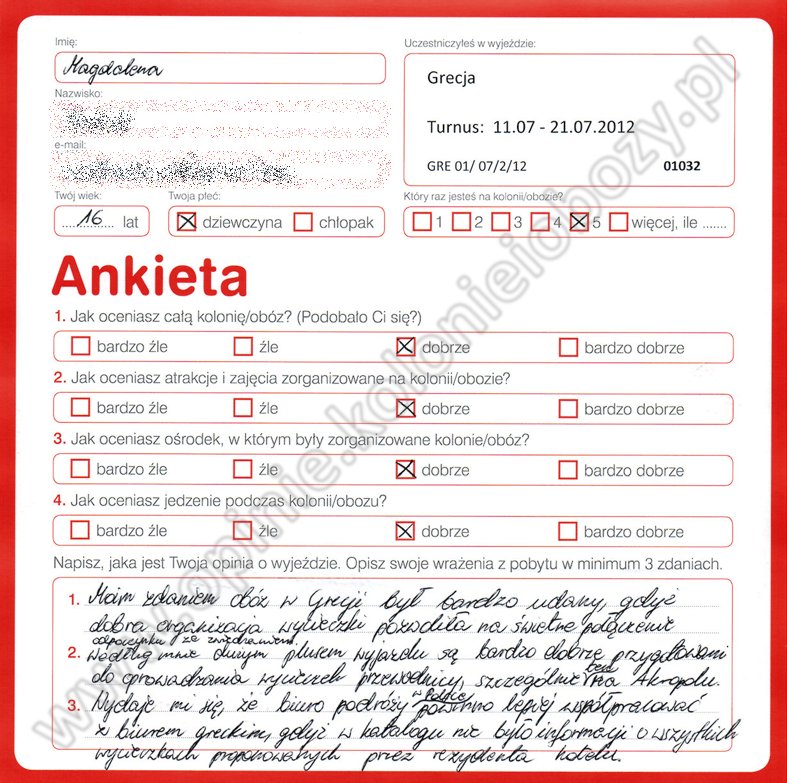 Imię:
Magdalena
Uczestniczyłeś w wyjeździe:
Grecja
Turnus: 11.07 - 21.07.2012
GRE 01/ 07/2/12 01032
Nazwisko:
e-mail:
Twój wiek:
16 lat
Twoja płeć:
dziewczyna chłopak
Który raz jesteś na kolonii/obozie?
1 2 3 4 5 więcej, ile .......
Ankieta
1. Jak oceniasz całą kolonię/obóz? (Podobało Ci się?)
bardzo źle źle dobrze bardzo dobrze
2. Jak oceniasz atrakcje i zajęcia zorganizowane na kolonii/obozie?
bardzo źle źle dobrze bardzo dobrze
3. Jak oceniasz ośrodek, w którym były zorganizowane kolonie/obóz?
bardzo źle źle dobrze bardzo dobrze
4. Jak oceniasz jedzenie podczas kolonii/obozu?
bardzo źle źle dobrze bardzo dobrze
Napisz, jaka jest Twoja opinia o wyjeździe. Opisz swoje wrażenia z pobytu w minimum 3 zdaniach.
1. Moim zdaniem obóz w Grecji był bardzo udany, gdyż
dobra organizacja wycieczki pozwoliła na świetne połączenie
odpoczynku ze zwiedzaniem
2. Według mnie dużym plusem wyjazdu są bardzo dobrze przygotowani
do oprowadzania wycieczek przewodnicy, szczególnie na Akropolu.
3. Wydaje mi się, że biuro podróży w Polsce powinno lepiej współpracować
z biurem greckim, gdyż w katalogu nie było informacji o wszystkich
wycieczkach proponowanych przez rezydenta hotelu.
www.opinie.kolonieiobozy.pl